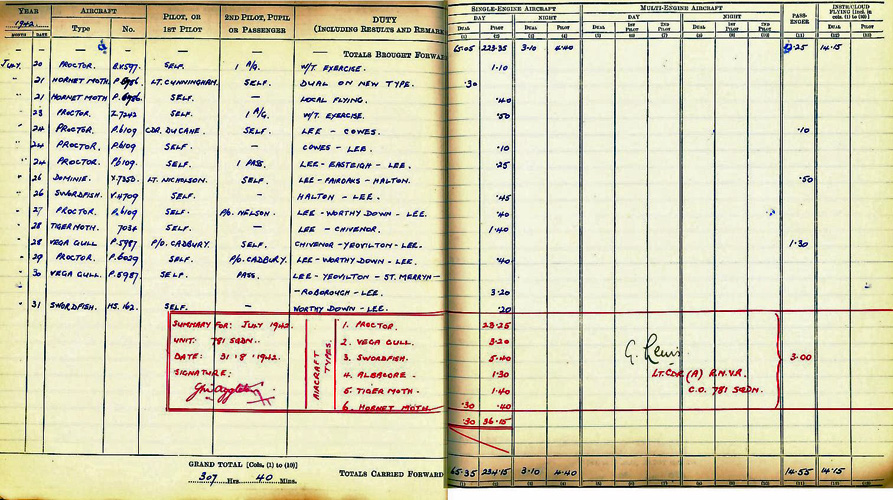 YEAR AIRCRAFT PILOT, OR 1ST PILOT 2ND PILOT, PUPIL OR PASSENGER DUTY (INCLUDING RESULTS AND REMARKS SINGLE-ENGINE AIRCRAFT MULTI-ENGINE AIRCRAFT PASSENGER INSTR/CLOUD FLYING [Incl. in cols. (1) to (10)]
1942. DAY NIGHT DAY NIGHT
MONTH DATE Type No. DUAL PILOT DUAL PILOT DUAL 1ST PILOT 2ND PILOT DUAL 1ST PILOT 2ND PILOT DUAL PILOT
(1) (2) (3) (4) (5) (6) (7) (8) (9) (10) (11) (12) (13)
— — — — — TOTALS BROUGHT FORWARD 65.05 223.35 3.10 4.40 12.25 14.15
JULY. 20 PROCTOR. SELF. 1 A/G. W/T. EXERCISE. 1.10
" 21 HORNET MOTH. LT. CUNNINGHAM. SELF. DUAL ON NEW TYPE. .30
" 21 HORNET MOTH SELF. — LOCAL FLYING. .40
" 23 PROCTOR. Z.7242 SELF. 1 A/G. W/T. EXERCISE. .50
" 24 PROCTOR. P.6109 CDR. DU CANE. SELF. LEE - COWES. .10
" 24 PROCTOR. P.6109 SELF. — COWES - LEE. .10
" 24 PROCTOR. P.6109. SELF. 1 PASS. LEE - EASTEIGH - LEE. .25
" 26 DOMINIE. LT. NICHOLSON. SELF. LEE - FAIROAKS - HALTON. .50
" 26 SWORDFISH. V.4709 SELF. — HALTON - LEE. .45
" 27 PROCTOR. P.6109 SELF. P/O. NELSON. LEE - WORTHY DOWN - LEE. .40
" 28 TIGER MOTH. 7034 SELF. — LEE - CHIVENOR. 1.40
" 28 VEGA GULL P.5987 P/O. CADBURY. SELF. CHIVENOR - YEOVILTON - LEE. 1.30
" 29 PROCTOR. P.6029 SELF. P/O. CADBURY. LEE - WORTHY DOWN - LEE. .40
" 30 VEGA GULL. P.5987. SELF. PASS. LEE - YEOVILTON - ST. MERRYN -
- ROBOROUGH - LEE. 3.20
" 31 SWORDFISH. HS. 162. SELF. — WORTHY DOWN - LEE. .20
SUMMARY FOR: JULY 1942. AIRCRAFT TYPES. 1. PROCTOR. 23.25
UNIT: 781 SQDN. 2. VEGA GULL. 3.20
DATE: 31.8.1942. 3. SWORDFISH. 5.40 G. Lewis 3.00
SIGNATURE: 4. ALBACORE. 1.30 LT. CDR (A) R.N.V.R.
5. TIGER MOTH. 1.40 C.O. 781 SQDN.
6. HORNET MOTH. .30 .40
.30 36.15
GRAND TOTAL [Cols. (1) to (10)]
307 Hrs. 40 Mins. TOTALS CARRIED FORWARD 65.35 234.15 3.10 4.40 14.55 14.15
(1) (2) (3) (4) (5) (6) (7) (8) (9) (10) (11) (12) (13)